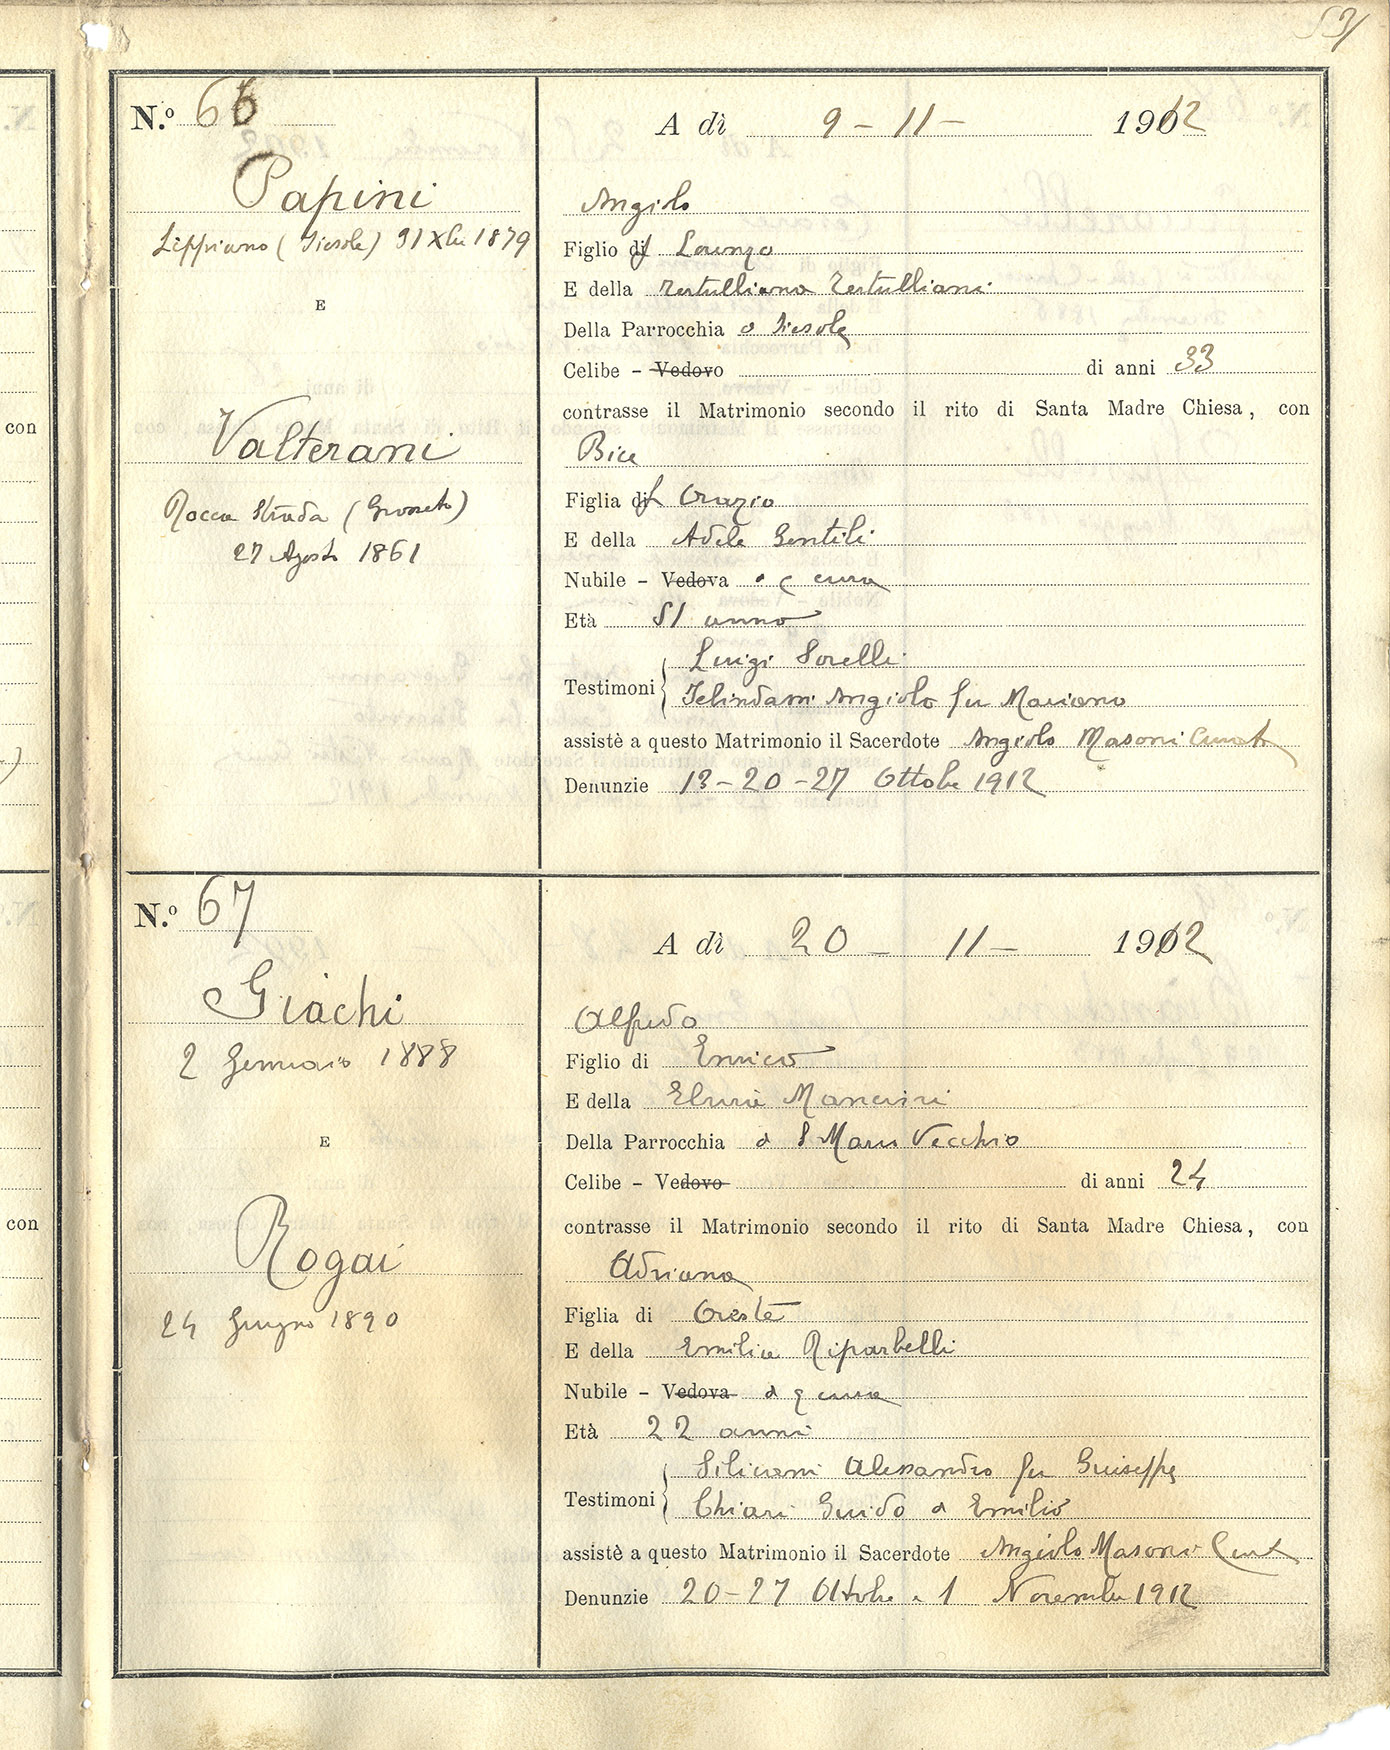 53
N.º 66
A dì 9 - 11 - 1912
Papini
Lippiano (Fiesole) 31 Xbre 1879
E
Valterani
Rocca Strada (Grosseto)
27 Agosto 1861
Angiolo
Figlio di Lorenzo
E della Tertulliana Tertulliani
Della Parrocchia a Fiesole
Celibe - Vedovo di anni 33
contrasse il Matrimonio secondo il rito di Santa Madre Chiesa, con
Bice
Figlia di Orazio
E della Adele Gentili
Nubile - Vedova cura
Età 51 anno
Luigi Sorelli
Testimoni
Angiolo fu Mariano
assistè a questo Matrimonio il Sacerdote Angiolo Masoni Curato
Denunzie 13-20-27 Ottobre 1912
N.º 67
A dì 20 - 11 - 1912
Giachi
2 Gennaio 1888
E
Rogai
24 Giugno 1890
Alfredo
Figlio di Enrico
E della Mancini
Della Parrocchia d S Marco Vecchio
Celibe - Vedovo di anni 24
contrasse il Matrimonio secondo il rito di Santa Madre Chiesa, con
Adriana
Figlia di Oreste
E della Emilia Riparbelli
Nubile - Vedova d q cura
Età 22 anni
Siliani Alessandro fu Giuseppe
Testimoni
Chiari Guido d Emilio
assistè a questo Matrimonio il Sacerdote Angiolo Masoni Curat
Denunzie 20-27 Ottobre e 1 Novembre 1912
con
con